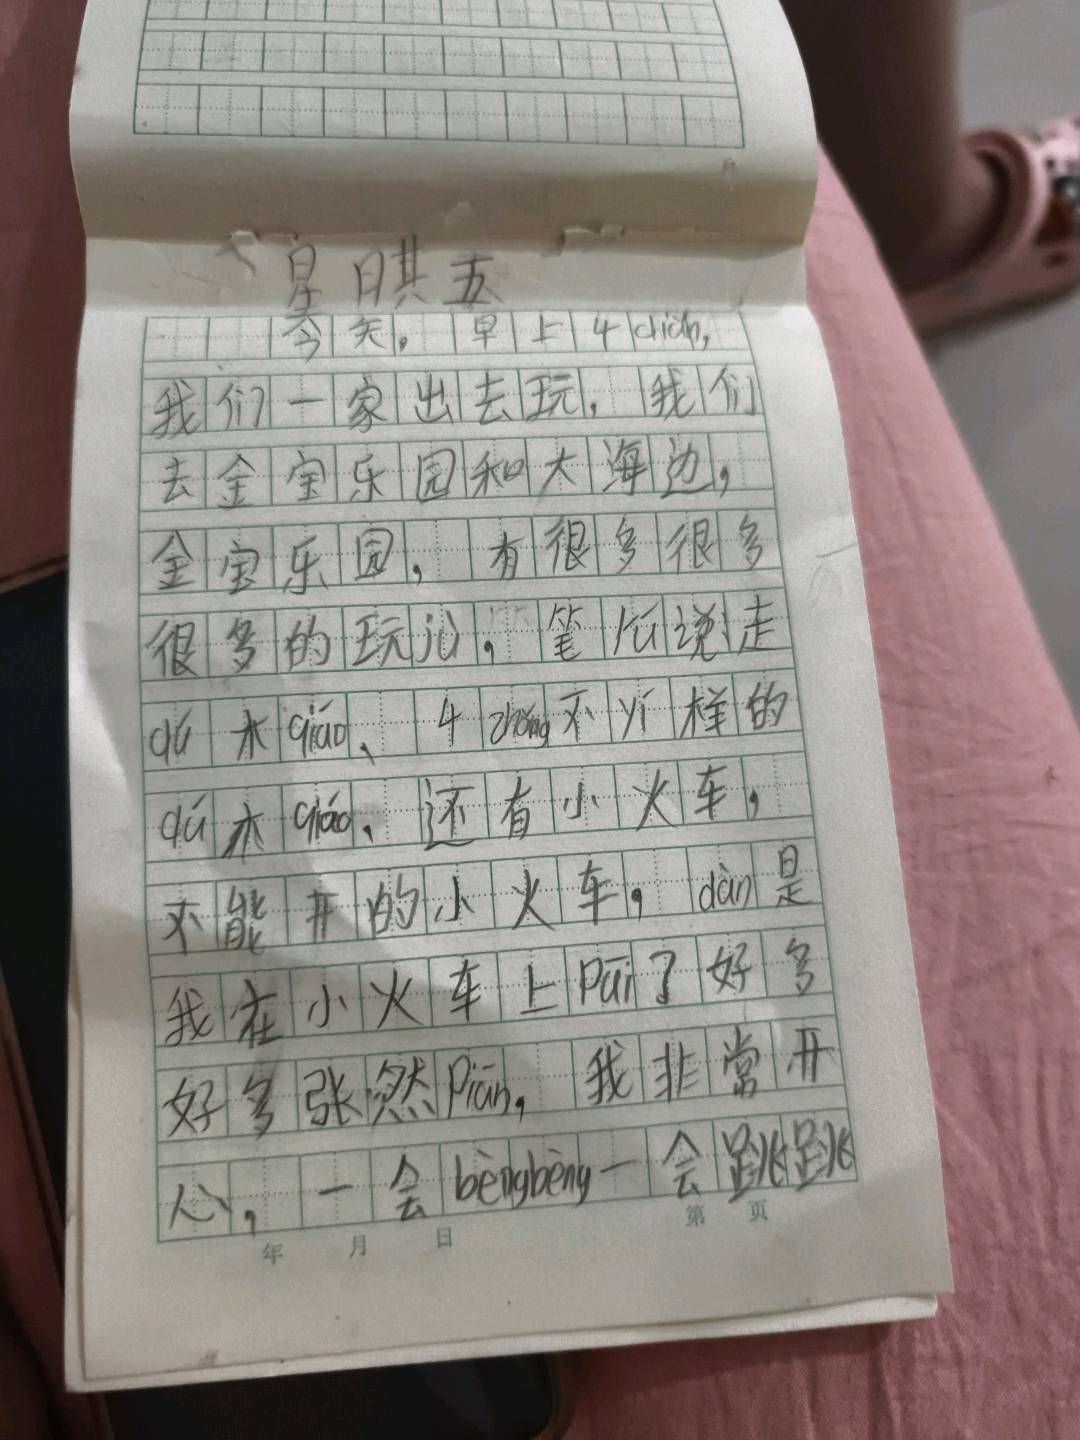 星期五
今天，早上4diǎn，
我们一家出去玩，我们
去金宝乐园和大海边，
金宝乐园，有很多很多
很多的玩jù，笔rú说走
dú木qiáo、4zhǒng不yí样的
dú木qiáo、还有小火车，
不能开的小火车，dàn是
我在小火车上pāi了好多
好多张然piàn，我非常开
心，一会bèngbèng一会跳跳
年 月 日 第 页